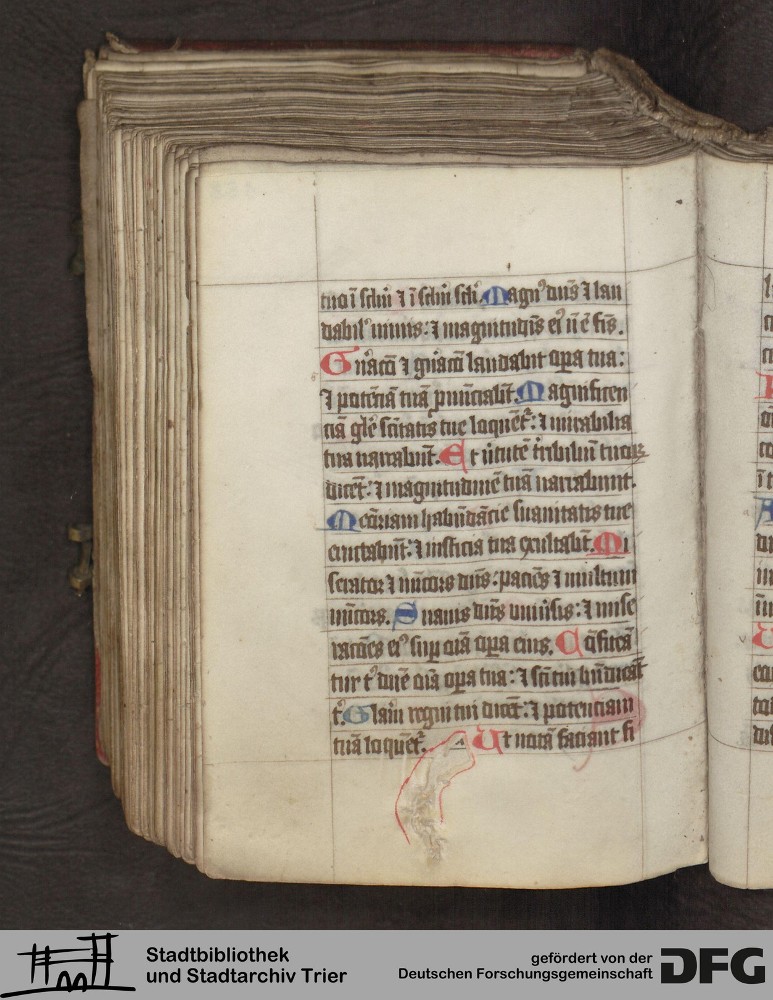 tuū ī sclm̄ ⁊ ī sclm̄ scli. Magn⁹ dn̄s ⁊ lau
dabil⁹ nimis: ⁊ magnitudīs ei⁹ nō ē fīs.
Gn̄acō ⁊ gn̄acō laudabit oꝑa tua:
⁊ potēciā tuā ꝓnūciabūt. Magnificen
ciā glē sc̄itatis tue loquēt᷑: ⁊ mirabilia
tua narrabūt. Et v̄tutē t̄ribiliū tuoꝝ
dicēt: ⁊ magnitudinē tuā narrabunt.
Meōriam habūdācie suauitatis tue
eructabūt: ⁊ iusticia tua exultabūt. Mi
serator ⁊ mīcors dn̄s: paciēs ⁊ multum
mīcors. Suauis dn̄s vniūsis: ⁊ mise
racōes ei⁹ suꝑ oīa oꝑa eius. Cōfiteā
tur t⁾ dn̄e oīa oꝑa tua: ⁊ sc̄i tui bn̄dicāt
t⁾. Glāiā regni tui dicēt: ⁊ potenciam
tuā loquēt᷑. Ut notā faciant fi
Stadtbibliothek
und Stadtarchiv Trier
gefördert von der
Deutschen Forschungsgemeinschaft
DFG